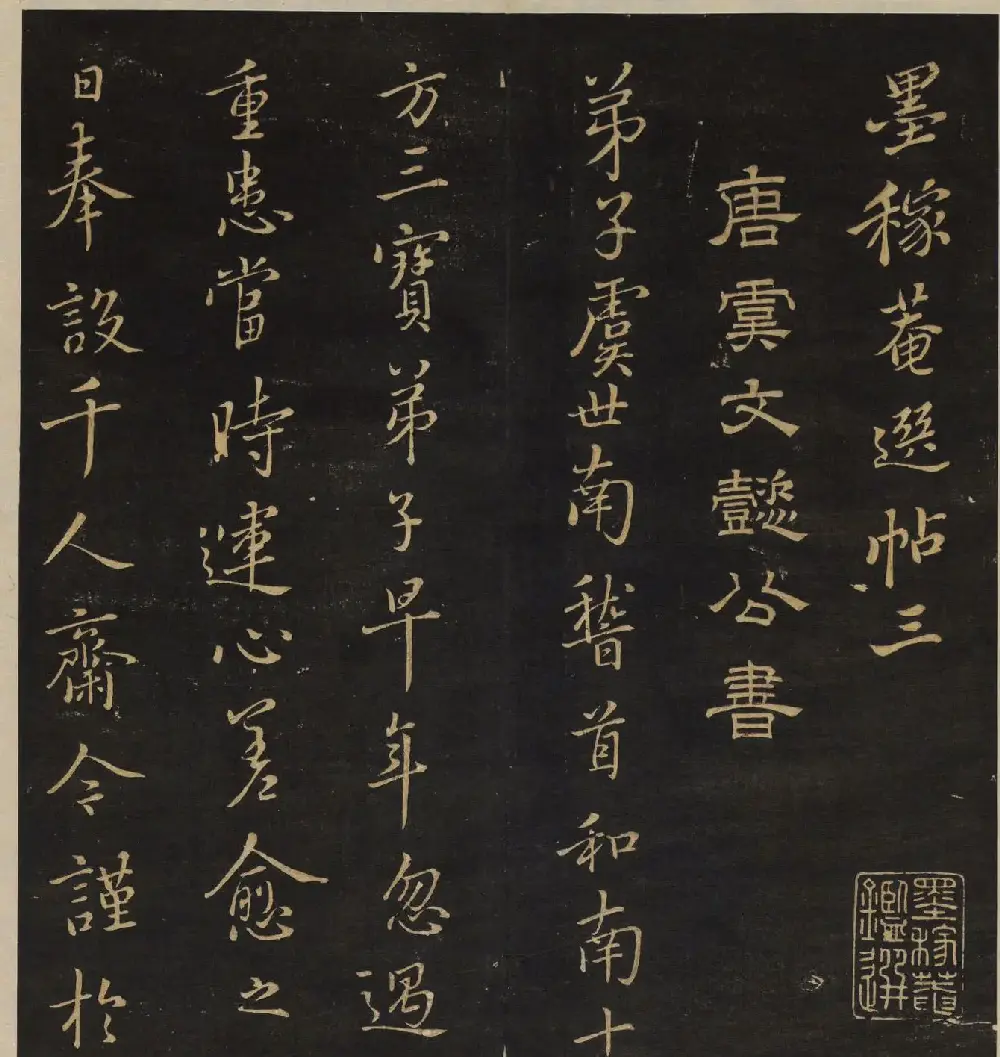 墨稼菴選帖三
唐虞文懿公書
弟子虞世南稽首和南十
方三寶弟子早年忽遇
重患當時運心差愈之
日奉設千人齋今謹於
墨稼菴
鑑選